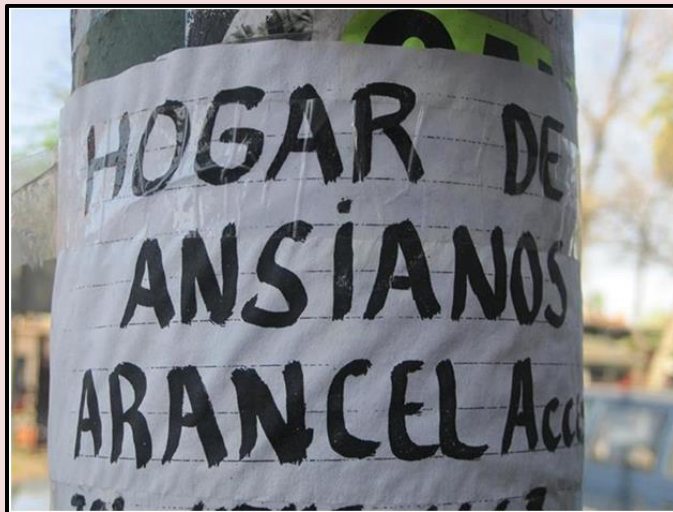 HOGAR DE
ANSIANOS
ARANCEL